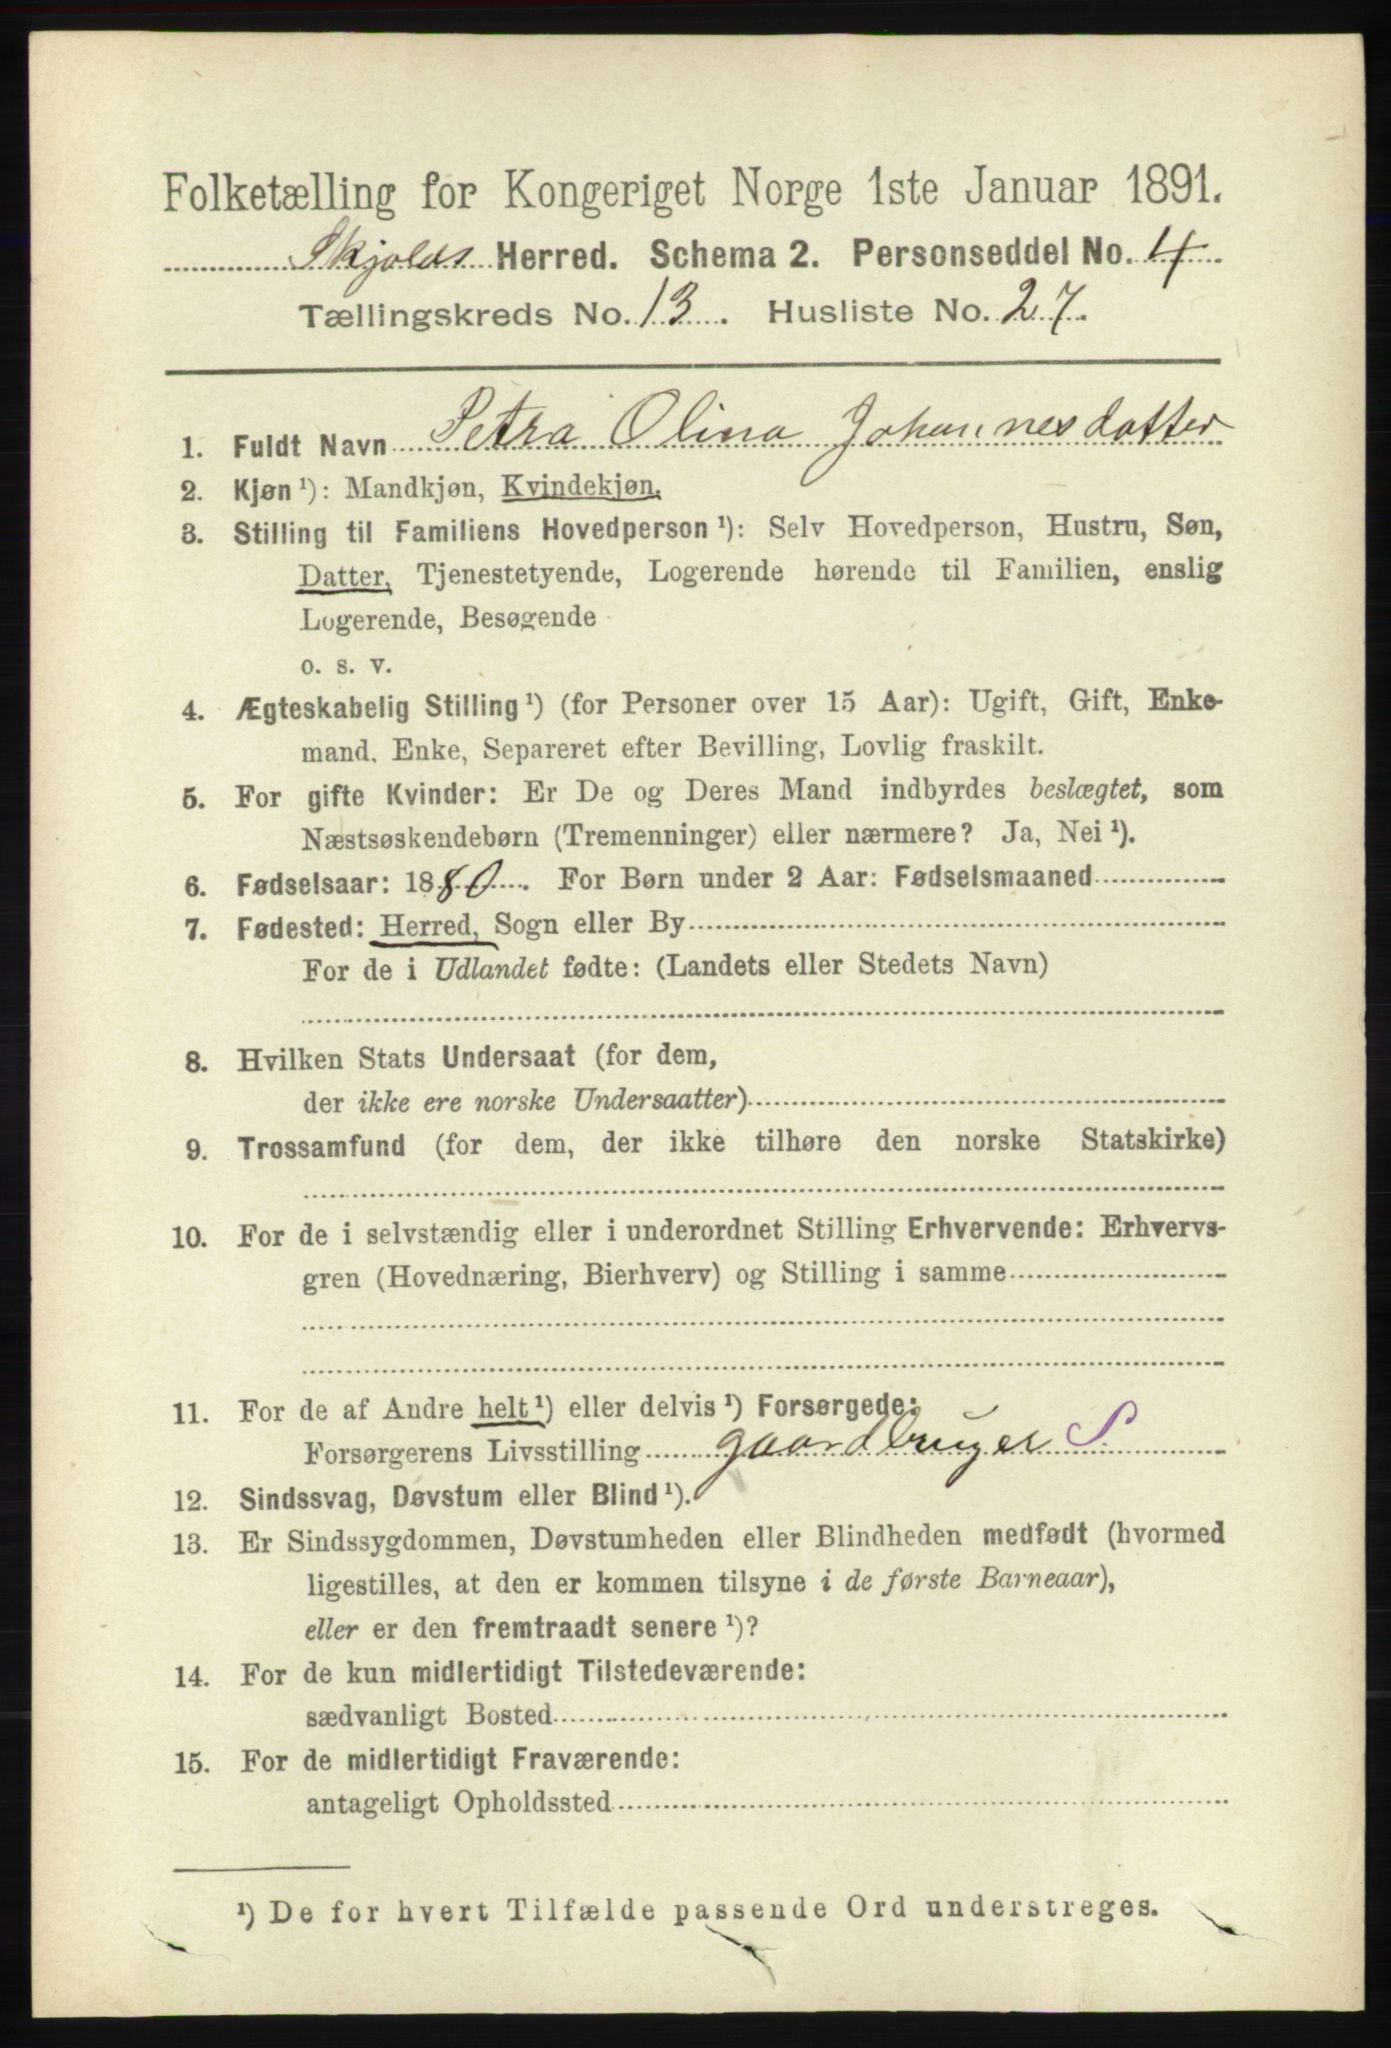 Folketælling for Kongeriget Norge 1ste Januar 1891.
Skjolds Herred. Schema 2. Personseddel No. 4.
Tællingskreds No. 13. Husliste No. 27.
1. Fuldt Navn Petra Olina Johannesdatter
2. Kjøn ¹): Mandkjøn, Kvindekjøn.
3. Stilling til Familiens Hovedperson ¹): Selv Hovedperson, Hustru, Søn,
Datter, Tjenestetyende, Logerende hørende til Familien, enslig
Logerende, Besøgende
o. s. v.
4. Ægteskabelig Stilling ¹) (for Personer over 15 Aar): Ugift, Gift, Enke-
mand, Enke, Separeret efter Bevilling, Lovlig fraskilt.
5. For gifte Kvinder: Er De og Deres Mand indbyrdes beslægtet, som
Næstsøskendebørn (Tremenninger) eller nærmere? Ja, Nei ¹).
6. Fødselsaar: 1880. For Børn under 2 Aar: Fødselsmaaned
7. Fødested: Herred, Sogn eller By
For de i Udlandet fødte: (Landets eller Stedets Navn)
8. Hvilken Stats Undersaat (for dem,
der ikke ere norske Undersaatter)
9. Trossamfund (for dem, der ikke tilhøre den norske Statskirke)
10. For de i selvstændig eller i underordnet Stilling Erhvervende: Erhvervs-
gren (Hovednæring, Bierhverv) og Stilling i samme
11. For de af Andre helt ¹) eller delvis ¹) Forsørgede:
Forsørgerens Livsstilling gaardbruger S.
12. Sindssvag, Døvstum eller Blind ¹).
13. Er Sindssygdommen, Døvstumheden eller Blindheden medfødt (hvormed
ligestilles, at den er kommen tilsyne i de første Barneaar),
eller er den fremtraadt senere ¹)?
14. For de kun midlertidigt Tilstedeværende:
sædvanligt Bosted
15. For de midlertidigt Fraværende:
antageligt Opholdssted
¹) De for hvert Tilfælde passende Ord understreges.